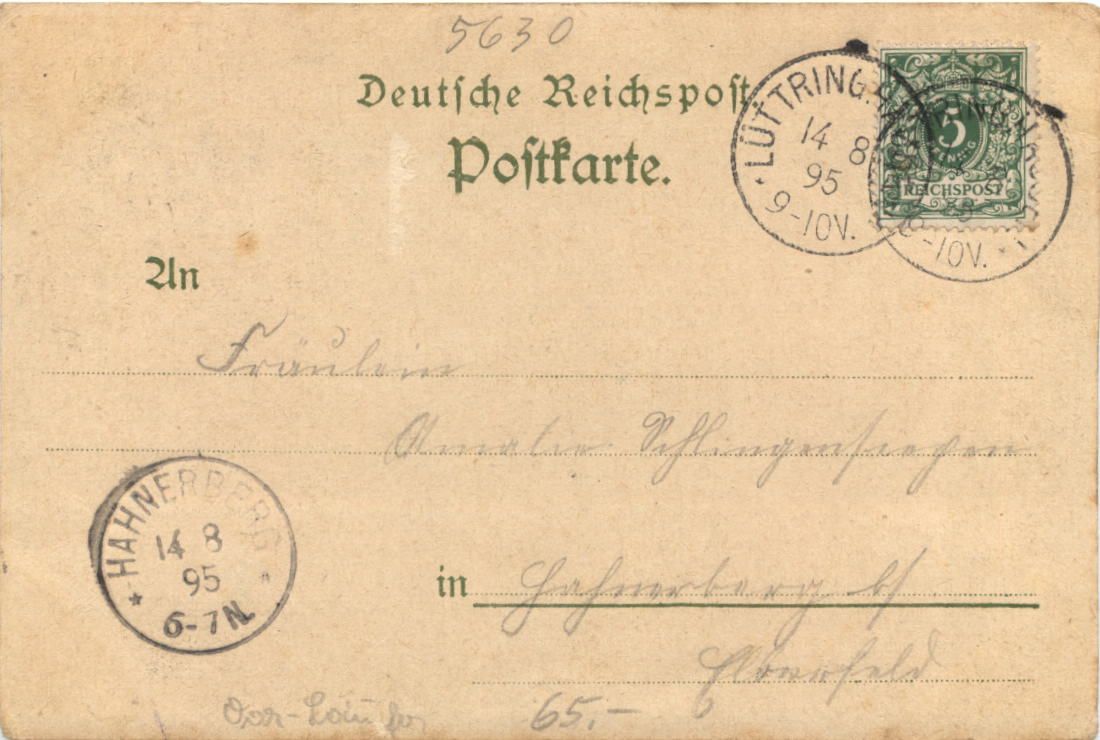 5630
Deutsche Reichspost
Postkarte.
LÜTTRINGHAUSEN
14 8
95
9-10V.
5
REICHSPOST
9-10V.
An
Fräulein
Amalie Schlingensiepen
HAHNERBERG
14 8
95
6-7N.
in Hahnerberg b/
Elberfeld
65.-